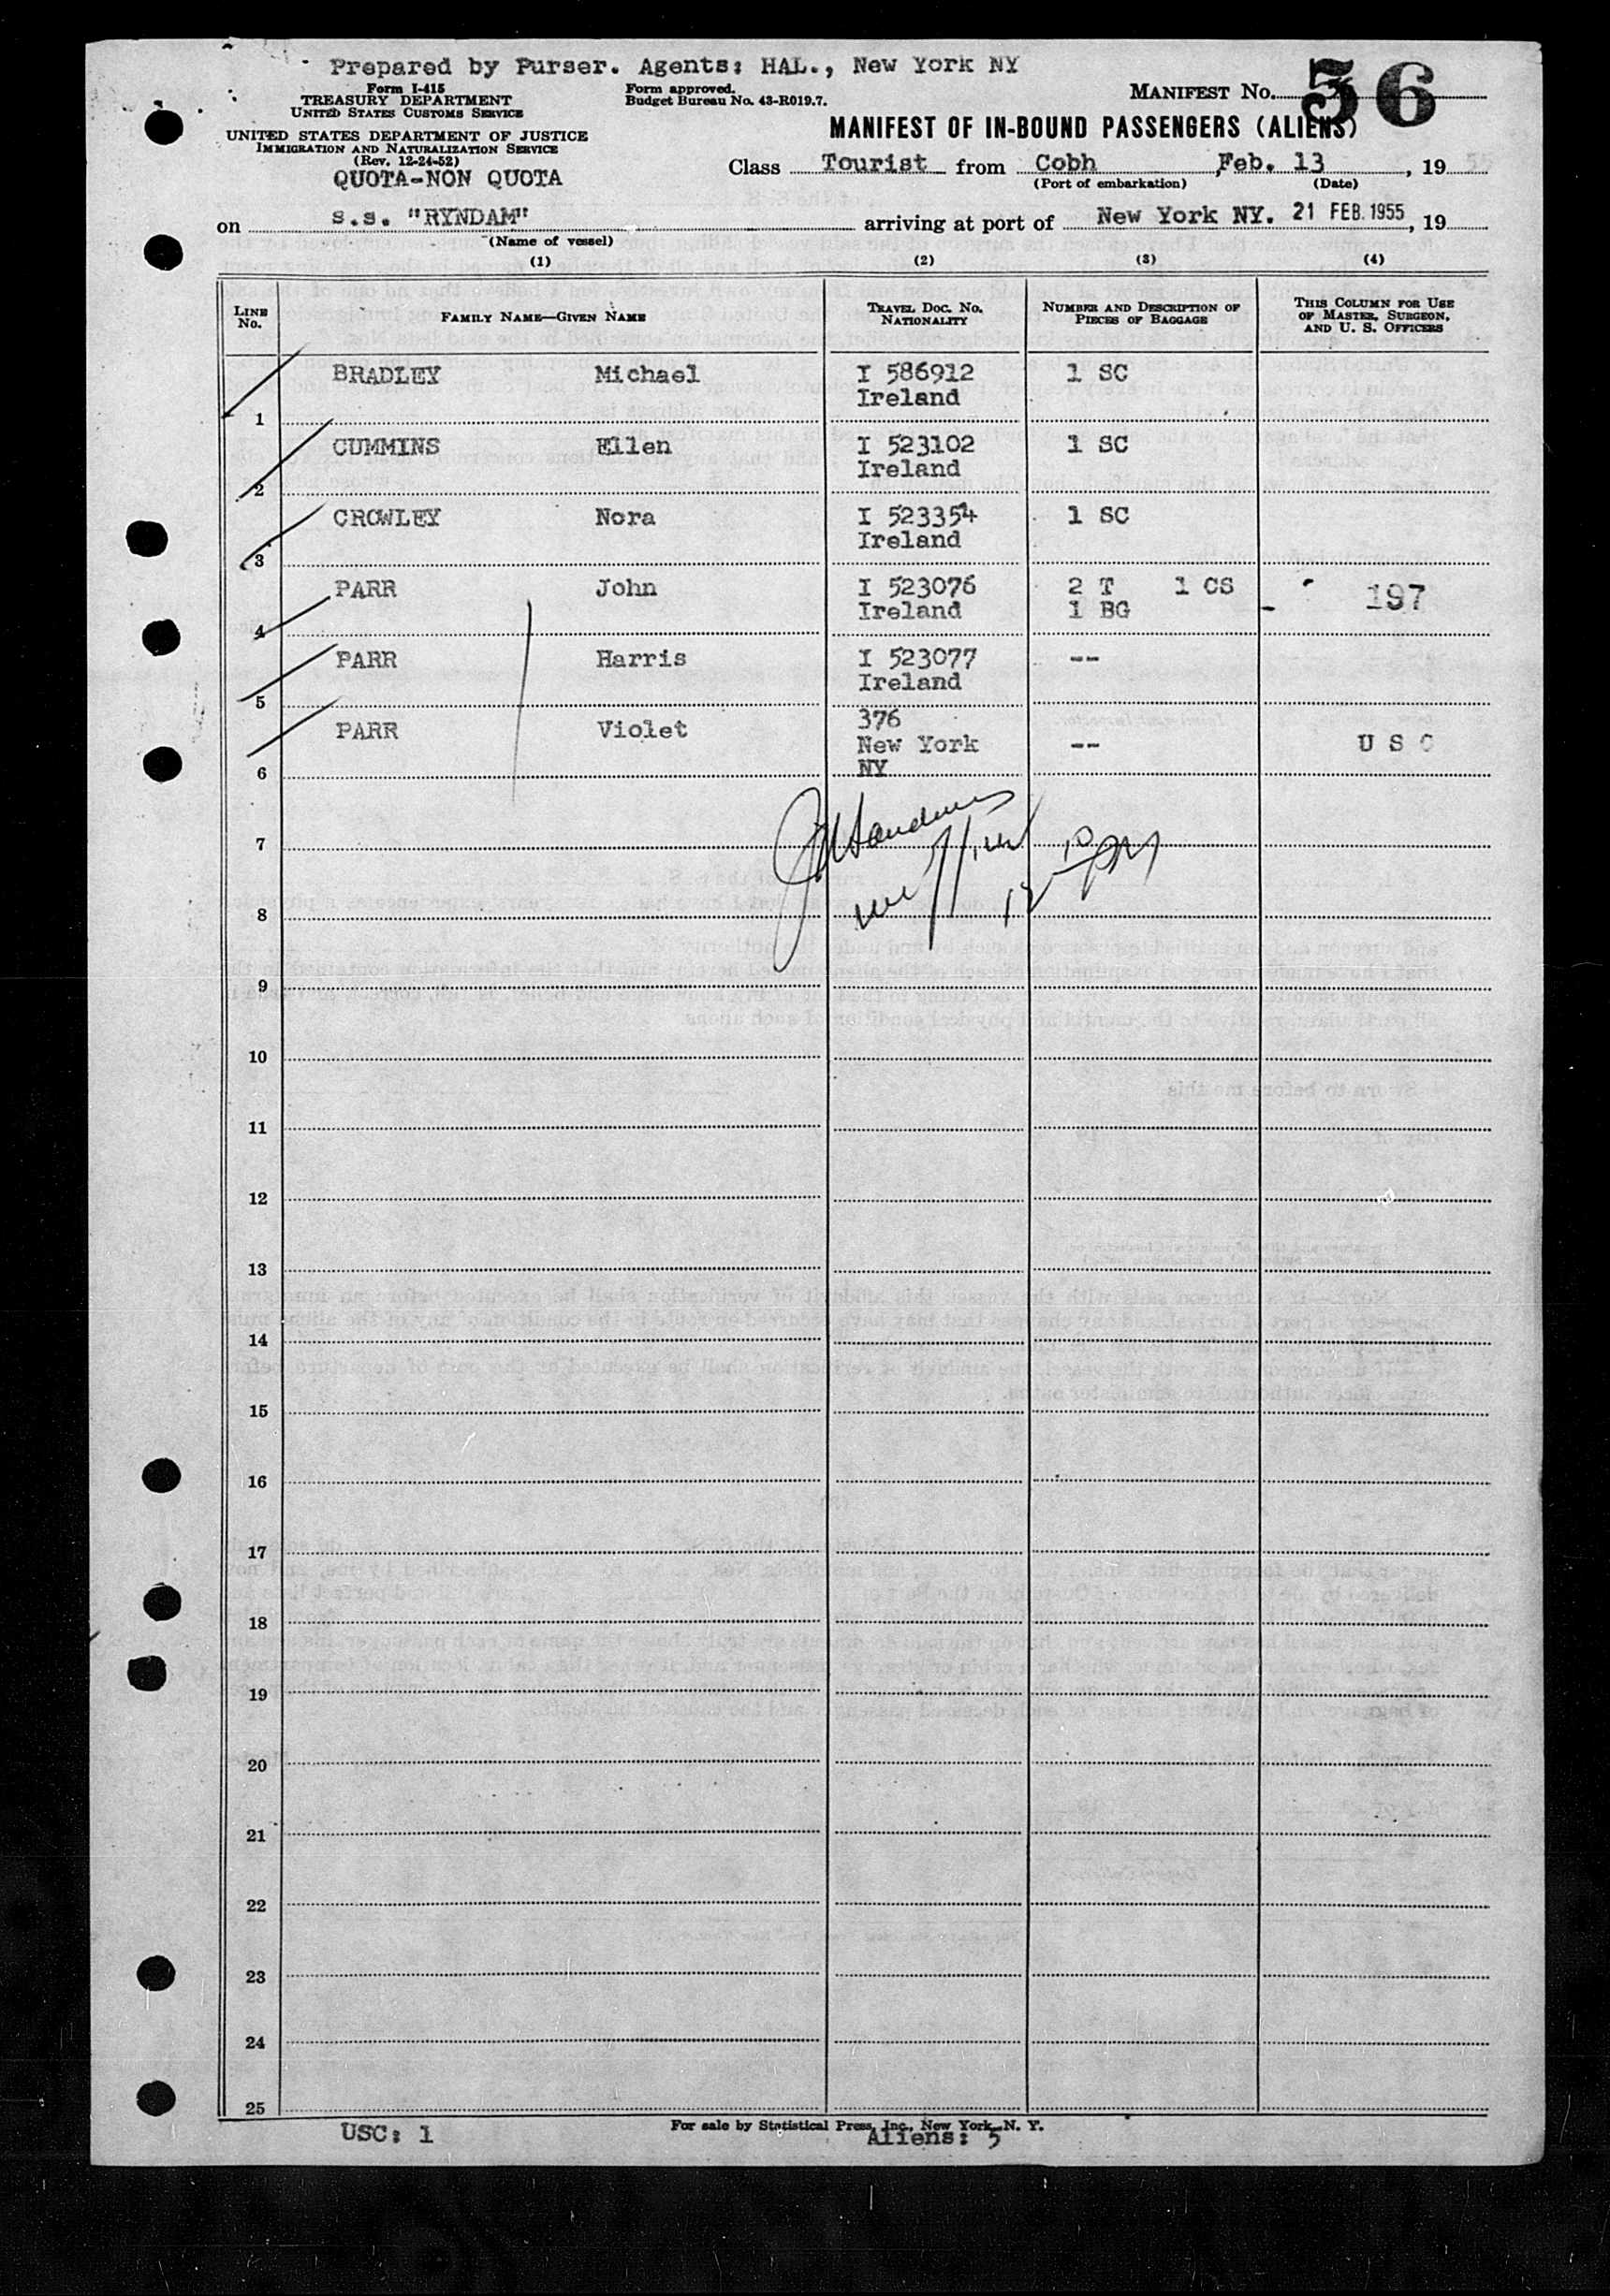 Prepared by Purser. Agents: HAL., New York NY
Form I-415
TREASURY DEPARTMENT
UNITED STATES CUSTOMS SERVICE
Form approved.
Budget Bureau No. 43-R019.7.
MANIFEST NO. 56
UNITED STATES DEPARTMENT OF JUSTICE
IMMIGRATION AND NATURALIZATION SERVICE
(Rev. 12-24-52)
QUOTA-NON QUOTA
MANIFEST OF IN-BOUND PASSENGERS (ALIENS)
Class Tourist from Cobh, Feb. 13, 19 55
(Port of embarkation) (Date)
on s.s. "RYNDAM" arriving at port of New York NY. 21 FEB. 1955, 19
(Name of vessel)
(1) (2) (3) (4)
LINE NO. FAMILY NAME—GIVEN NAME TRAVEL DOC. NO. NATIONALITY NUMBER AND DESCRIPTION OF PIECES OF BAGGAGE THIS COLUMN FOR USE OF MASTER, SURGEON, AND U. S. OFFICERS
BRADLEY Michael I 586912 1 SC
Ireland
1
CUMMINS Ellen I 523102 1 SC
Ireland
2
CROWLEY Nora I 523354 1 SC
Ireland
3
PARR John I 523076 2 T 1 CS 197
Ireland 1 BG
4
PARR Harris I 523077 --
Ireland
5
PARR Violet 376
New York -- U S C
6 NY
7
8
9
10
11
12
13
14
15
16
17
18
19
20
21
22
23
24
25
For sale by Statistical Press, Inc., New York, N. Y.
USC: 1 Aliens: 5